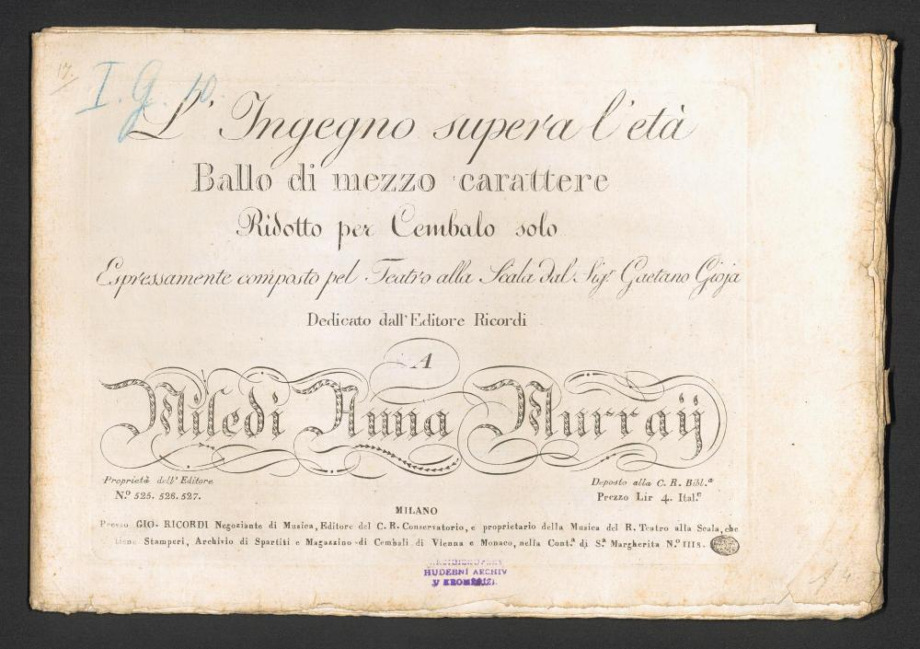 17.
I. G. 10.
L' Ingegno supera l'età
Ballo di mezzo carattere
Ridotto per Cembalo solo
Espressamente composto pel Teatro alla Scala dal Sig.r Gaetano Gioja
Dedicato dall'Editore Ricordi
A
Miledi Anna Murraij
Proprietà dell'Editore
N.o 525. 526. 527.
Deposto alla C. R. Bibl.a
Prezzo Lir 4. Ital.e
MILANO
Presso GIO. RICORDI Negoziante di Musica, Editore del C. R. Conservatorio, e proprietario della Musica del R. Teatro alla Scala, che
tiene Stamperi, Archivio di Spartiti e Magazzino di Cembali di Vienna e Monaco, nella Cont.a di S.a Margherita N.o 1118.
HUDEBNÍ ARCHIV
V KROMĚŘÍŽI.